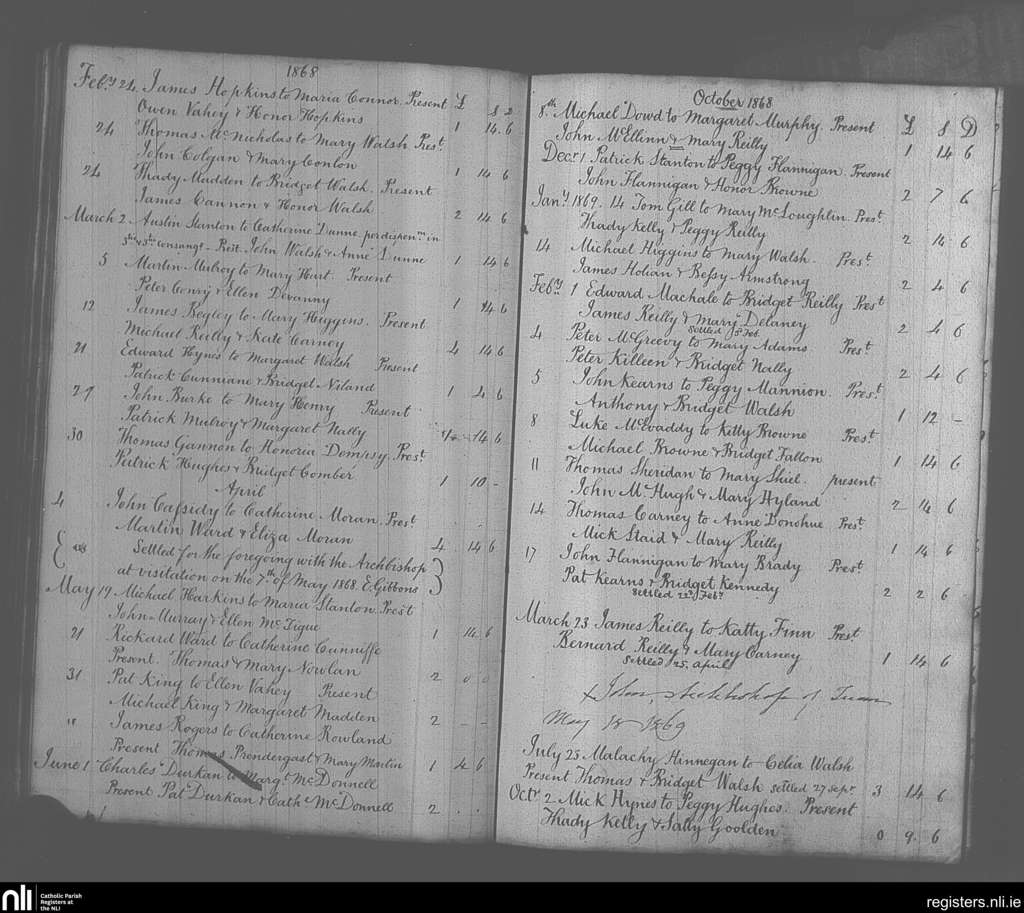 1868
Feb.y 24. James Hopkins to Maria Connor. Present £ s 2
Owen Vahey & Honor Hopkins 1 14. 6
24 Thomas Mc Nicholas to Mary Walsh Pres.t
John Colgan & Mary Conlon 1 14 6
24 Thady Madden to Bridget Walsh. Present
James Cannon & Honor Walsh 2 14 6
March 2. Austin Stanton to Catherine Dunne per dispen.m in
consang. Prst. John Walsh & Anne Dunne 1 14 6
5 Martin Mulroy to Mary Hurt. Present
Peter Conry & Ellen Devanny 1 14 6
12 James Begley to Mary Higgins. Present
Michael Reilly & Kate Carney 4 14 6
21 Edward Hynes to Margaret Walsh Present
Patrick Cunniane & Bridget Niland 1 4 6
27 John Burke to Mary Henry Present
Patrick Mulroy & Margaret Nally 14 6
30 Thomas Gannon to Honoria Demrsy. Pres.t
Patrick Hughes & Bridget Comber 1 10 -
April
4 John Cassidy to Catherine Moran. Prest
Martin Ward & Eliza Moran 4 14 6
Settled for the foregoing with the Archbishop
at visitation on the 7.th of May 1868. E. Gibbons
May 19. Michael Harkins to Maria Stanton. Prest
John Murray & Ellen McTigue 1 14 6
21 Rickard Ward to Catherine Cunniffe
Present. Thomas & Mary Nowlan 2 0 0
31 Pat King to Ellen Vahey Present
Michael King & Margaret Madden 2 - -
" James Rogers to Catherine Rowland
Present Thomas Prendergast & Mary Martin 1 4 6
June 1 Charles Durkan to Marg.t McDonnell
Present Pat Durkan & Cath. McDonnell 2 . .
October 1868
8.th Michael Dowd to Margaret Murphy. Present £ S D
John McEllinn & Mary Reilly 1 14 6
Dec.r 1. Patrick Stanton to Peggy Flannigan. Present
John Flannigan & Honor Browne 2 7 6
Jan.y 1869. 14 Tom Gill to Mary McLoughlin. Pres.t
Thady Kelly & Peggy Reilly 2 14 6
14 Michael Higgins to Mary Walsh. Pres.t
James Holian & Bessy Armstrong 2 4 6
Feb.y 1 Edward Machale to Bridget Reilly Pres.t
James Reilly & Mary Delaney 2 4 6
settled 3 Feb.
4 Peter McGreevy to Mary Adams Pres.t
Peter Killeen & Bridget Nally 2 4 6
5 John Kearns to Peggy Mannion. Pres.t
Anthony & Bridget Walsh 1 12 -
8 Luke McEvaddy to Kitty Browne Pres.t
Michael Browne & Bridget Fallon 1 14 6
11 Thomas Sheridan to Mary Shiel. present
John McHugh & Mary Hyland 2 14 6
14 Thomas Carney to Anne Donohue Pres.t
Mick Staid & Mary Reilly 1 14 6
17 John Flannigan to Mary Brady Pres.t
Pat Kearns & Bridget Kennedy 2 2 6
settled 22.d Feb.y
March 23 James Reilly to Katty Finn Prest
Bernard Reilly & Mary Carney 1 14 6
settled 25. april
+ John, Archbishop of Tuam
May 18 1869
July 23 Malachy Hinnegan to Celia Walsh
Present Thomas & Bridget Walsh settled 27 Sep.r 3 14 6
Oct.r 2. Mick Hynes to Peggy Hughes. Present
Thady Kelly & Sally Goolden 0 9. 6
nli Catholic Parish
Registers at
the NLI
registers.nli.ie